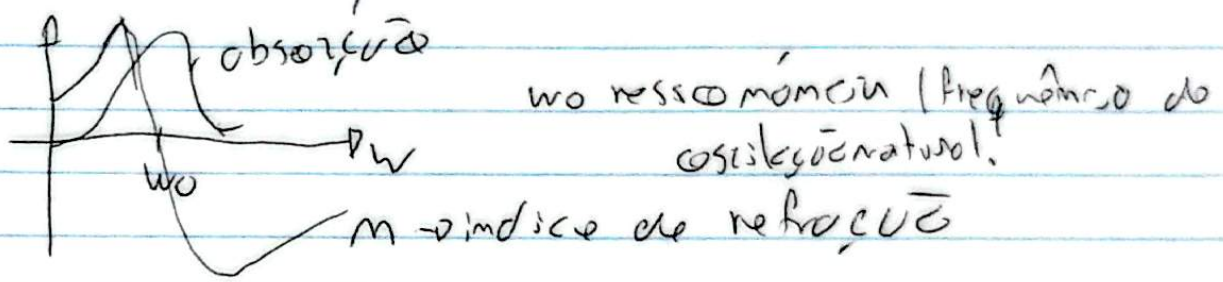 absorção
wo ressonância (frequência de
oscilação natural!
w
wo
n → indice de refração